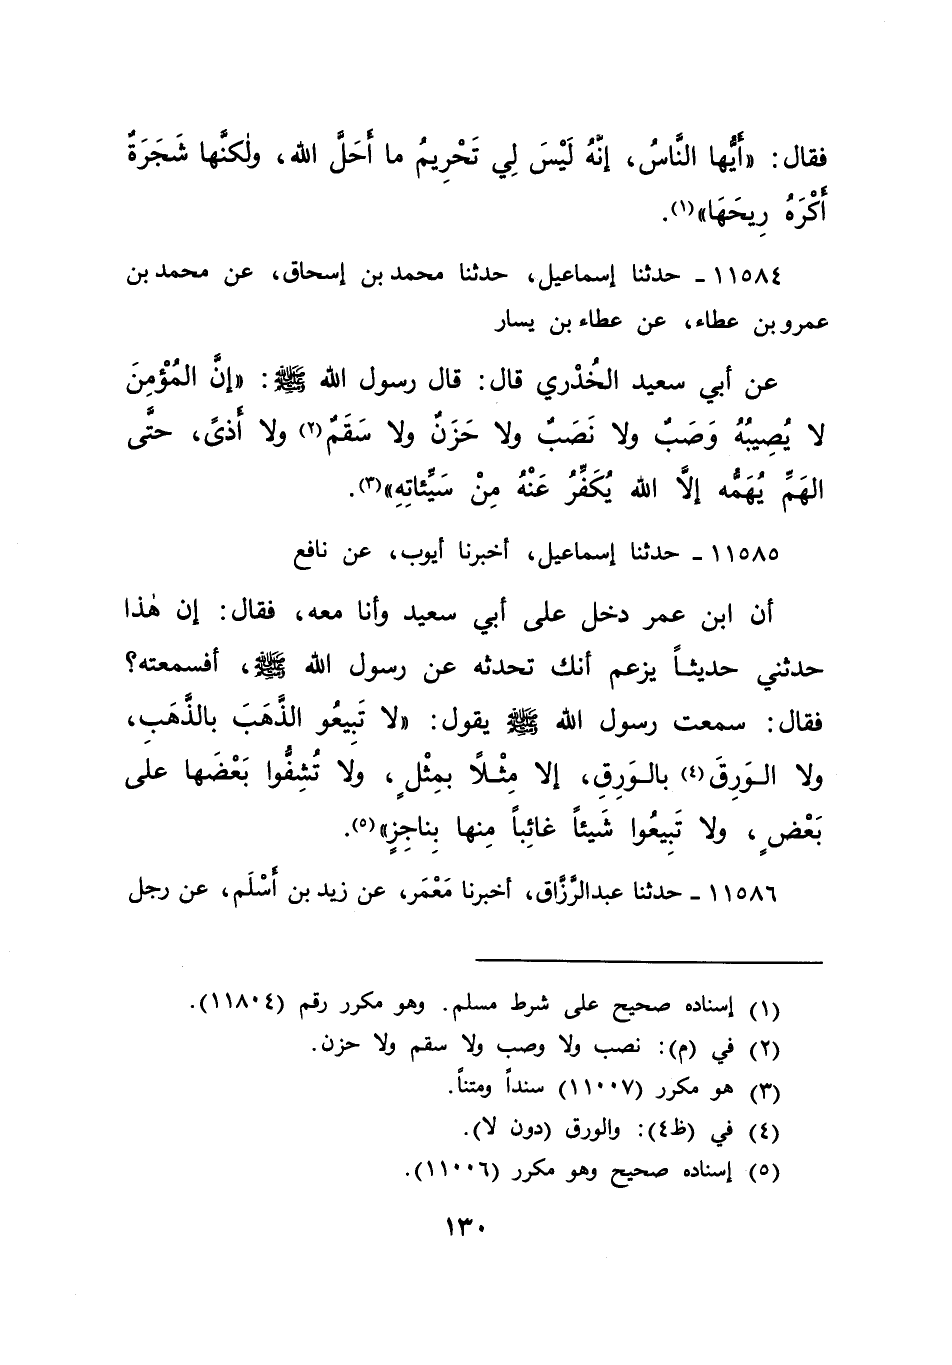 فقال: «أَيُّها النَّاسُ، إنَّهُ لَيْسَ لِي تَحْرِيمُ ما أَحَلَّ الله، ولٰكنَّها شَجَرَةٌ
أَكْرَهُ رِيحَهَا»(١).
١١٥٨٤ ـ حدثنا إسماعيل، حدثنا محمد بن إسحاق، عن محمد بن
عمرو بن عطاء، عن عطاء بن يسار
عن أبي سعيد الخُدْري قال: قال رسول الله ﷺ: «إنَّ المُؤْمِنَ
لا يُصِيبُهُ وَصَبٌ ولا نَصَبٌ ولا حَزَنٌ ولا سَقَمٌ(٢) ولا أَذىً، حتَّى
الهَمِّ يُهَمُّه إلَّا الله يُكَفِّرُ عَنْهُ مِنْ سَيِّئاتِهِ»(٣).
١١٥٨٥ ـ حدثنا إسماعيل، أخبرنا أيوب، عن نافع
أن ابن عمر دخل على أبي سعيد وأنا معه، فقال: إن هٰذا
حدثني حديثاً يزعم أنك تحدثه عن رسول الله ﷺ، أفسمعته؟
فقال: سمعت رسول الله ﷺ يقول: «لا تَبِيعُو الذَّهَبَ بالذَّهَبِ،
ولا الوَرِقَ(٤) بالوَرِقِ، إلا مِثْلاً بمِثْلٍ، ولا تُشِفُّوا بَعْضَها على
بَعْضٍ، ولا تَبِيعُوا شَيئاً غائِباً مِنها بِناجِزٍ»(٥).
١١٥٨٦ ـ حدثنا عبدالرَّزَّاق، أخبرنا مَعْمَر، عن زيد بن أَسْلَم، عن رجل
(١) إسناده صحيح على شرط مسلم. وهو مكرر رقم (١١٨٠٤).
(٢) في (م): نصب ولا وصب ولا سقم ولا حزن.
(٣) هو مكرر (١١٠٠٧) سنداً ومتناً.
(٤) في (ظ٤): والورق (دون لا).
(٥) إسناده صحيح وهو مكرر (١١٠٠٦).
١٣٠